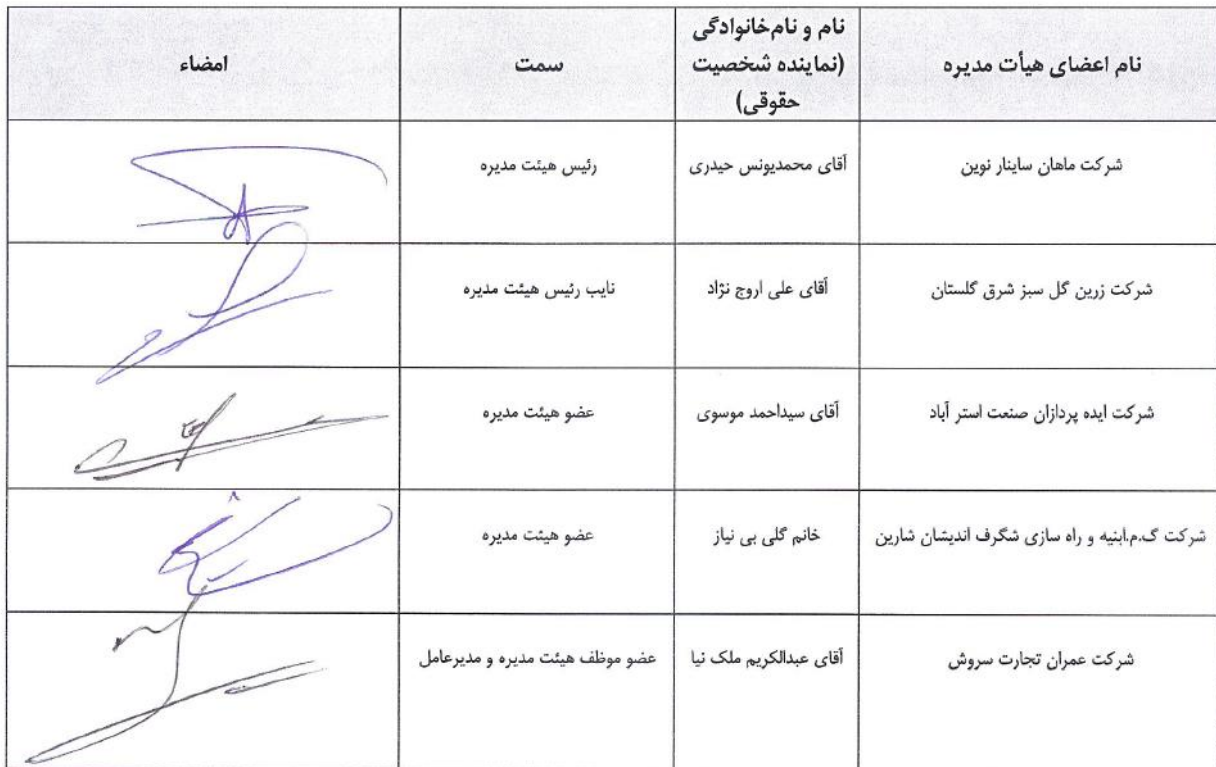 نام اعضای هیأت مدیره
نام و نام‌خانوادگی
(نماینده شخصیت
حقوقی)
سمت
امضاء
شرکت ماهان ساینار نوین
آقای محمدیونس حیدری
رئیس هیئت مدیره
شرکت زرین گل سبز شرق گلستان
آقای علی اروج نژاد
نایب رئیس هیئت مدیره
شرکت ایده پردازان صنعت استر آباد
آقای سیداحمد موسوی
عضو هیئت مدیره
شرکت گ.م.ابنیه و راه سازی شگرف اندیشان شارین
خانم گلی بی نیاز
عضو هیئت مدیره
شرکت عمران تجارت سروش
آقای عبدالکریم ملک نیا
عضو موظف هیئت مدیره و مدیرعامل